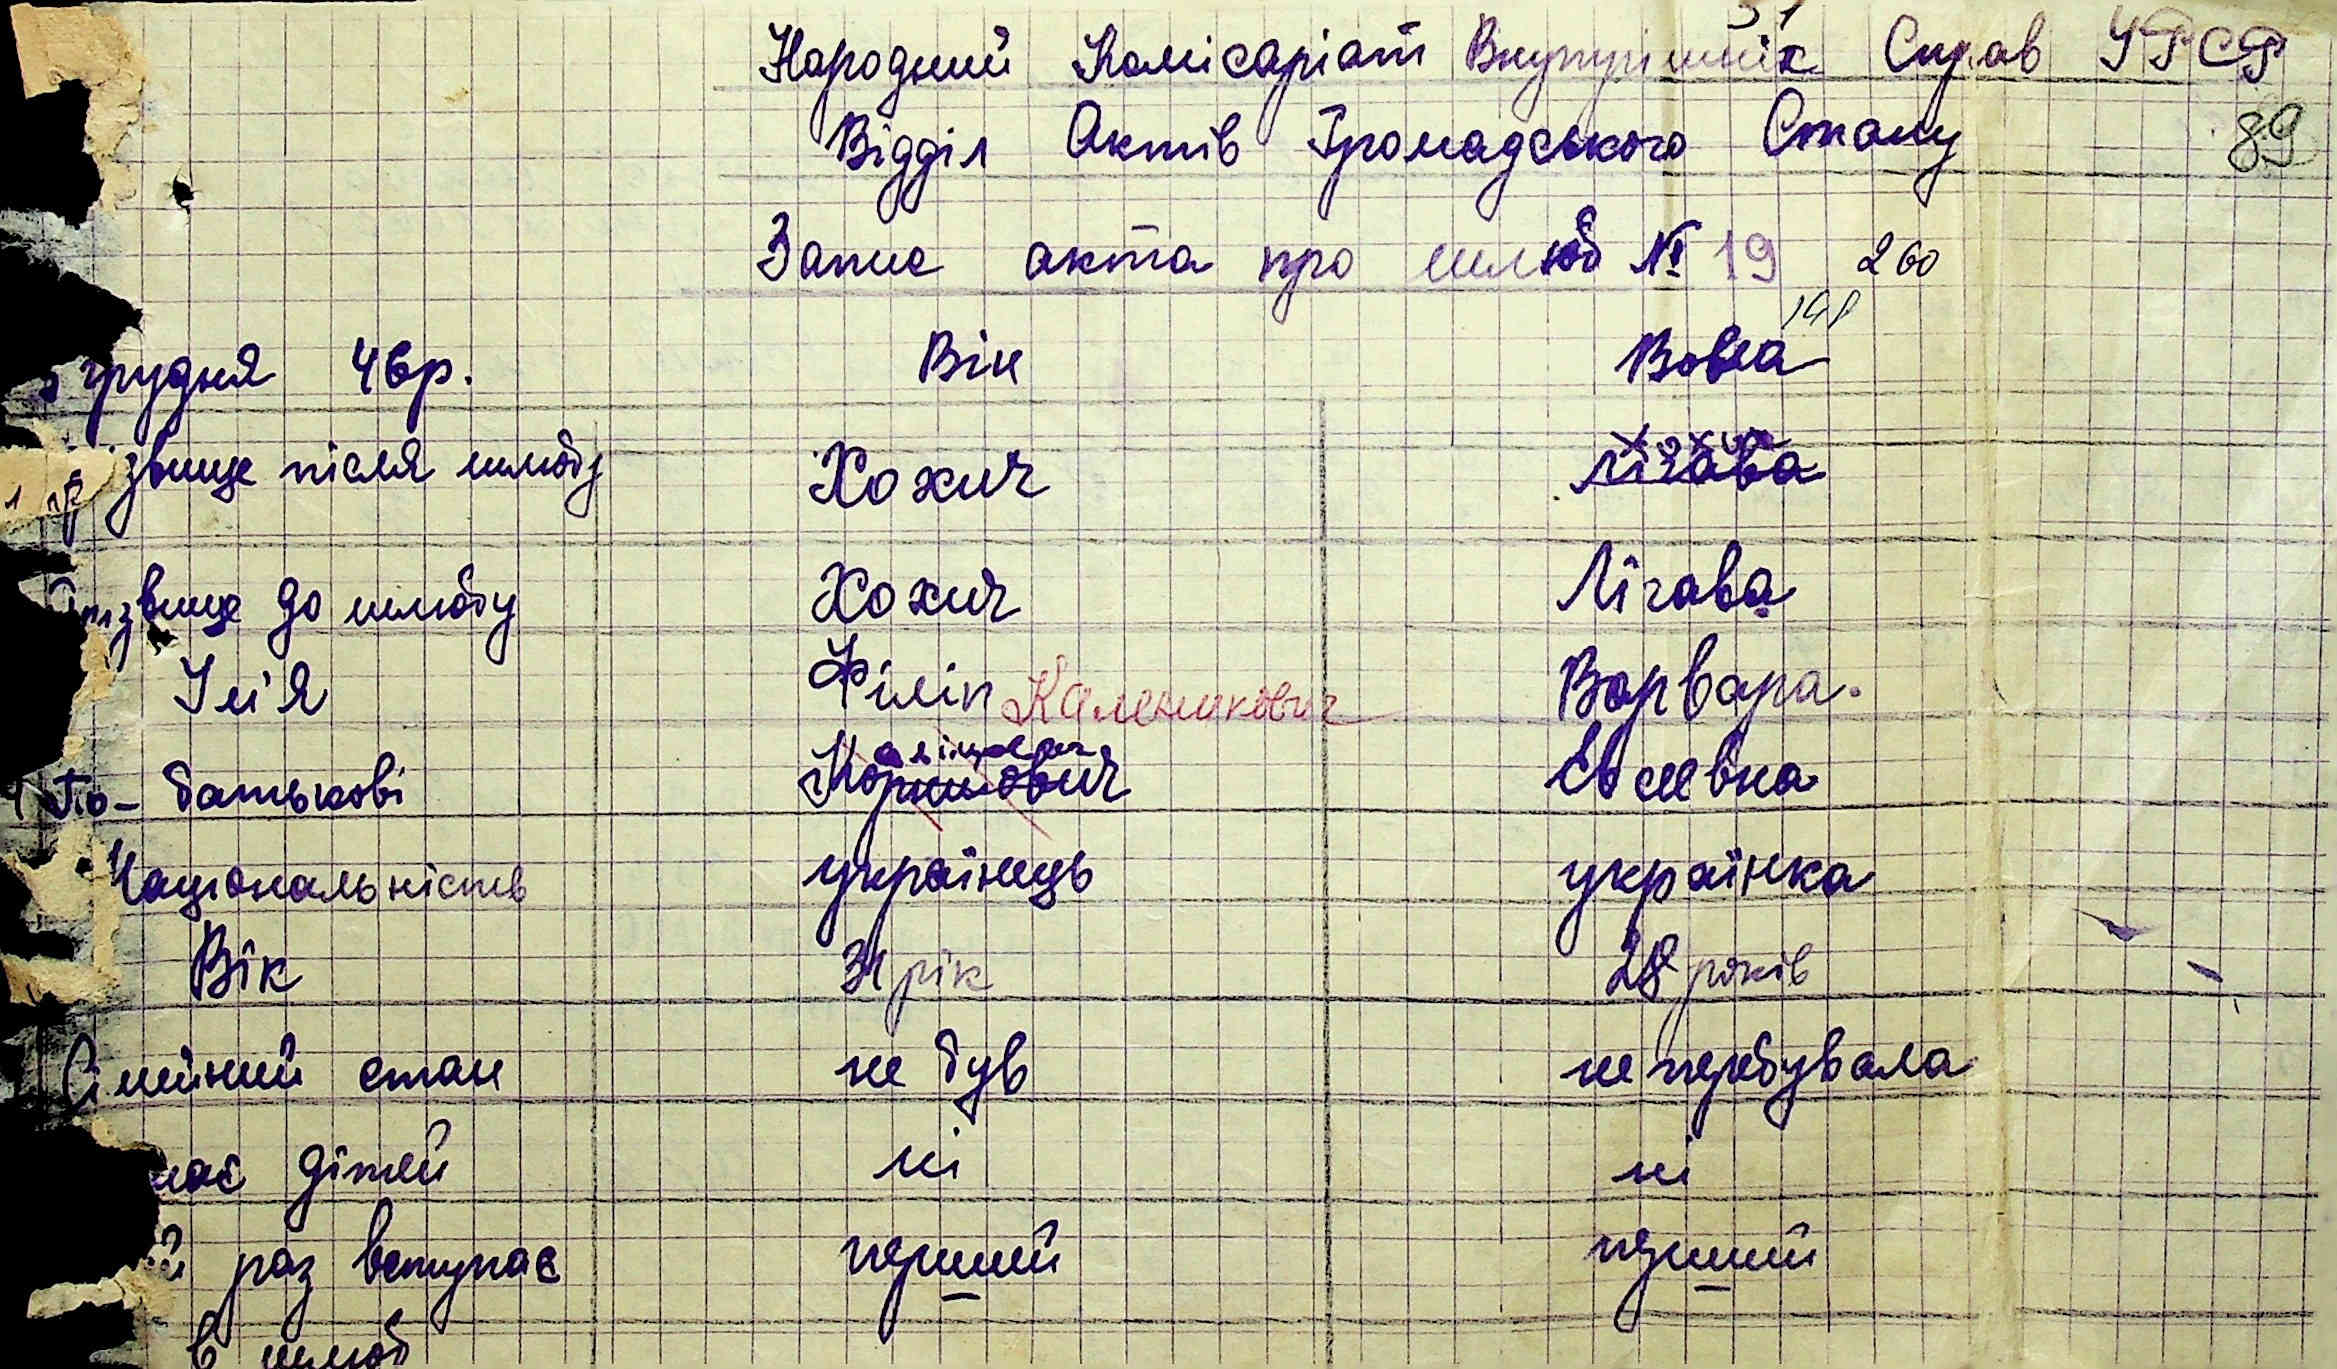 31
Народний Комісаріат Внутрішніх Справ УРСР
Відділ Актів Громадського Стану 89
Запис акта про шлюб № 19 260
грудня 46р. Він Вона
1 пр звище після шлюбу Хохич Лігава
звище до шлюбу Хохич Лігава
Ім'я Філіп Каленикович Варвара.
По-батькові
Національність українець українка
Вік 31 рік 28 років
Сімейний стан не був не перебувала
має дітей ні ні
ий раз вступає перший перший
в шлюб